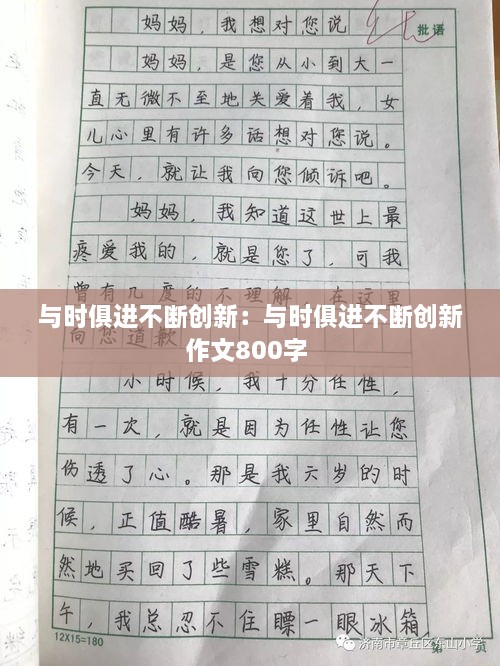 妈妈，我想对您说
批语
妈妈，是您从小到大一
直无微不至地关爱着我，女
儿心里有许多话想对您说。
今天，就让我向您倾诉吧。
妈妈，我知道这世上最
疼爱我的，就是您了，可我
曾有几度的不理解，在这里
向您道歉
与时俱进不断创新：与时俱进不断创新
作文800字
小时候，我十分任性，
有一次，就是因为任性让您
伤透了心。那是我六岁的时
候，正值酷暑，家里自然而
然地买回了些雪糕。那天下
午，我总忍不住瞟一眼冰箱
12×15=180
第 页
济南市章丘区东山小学